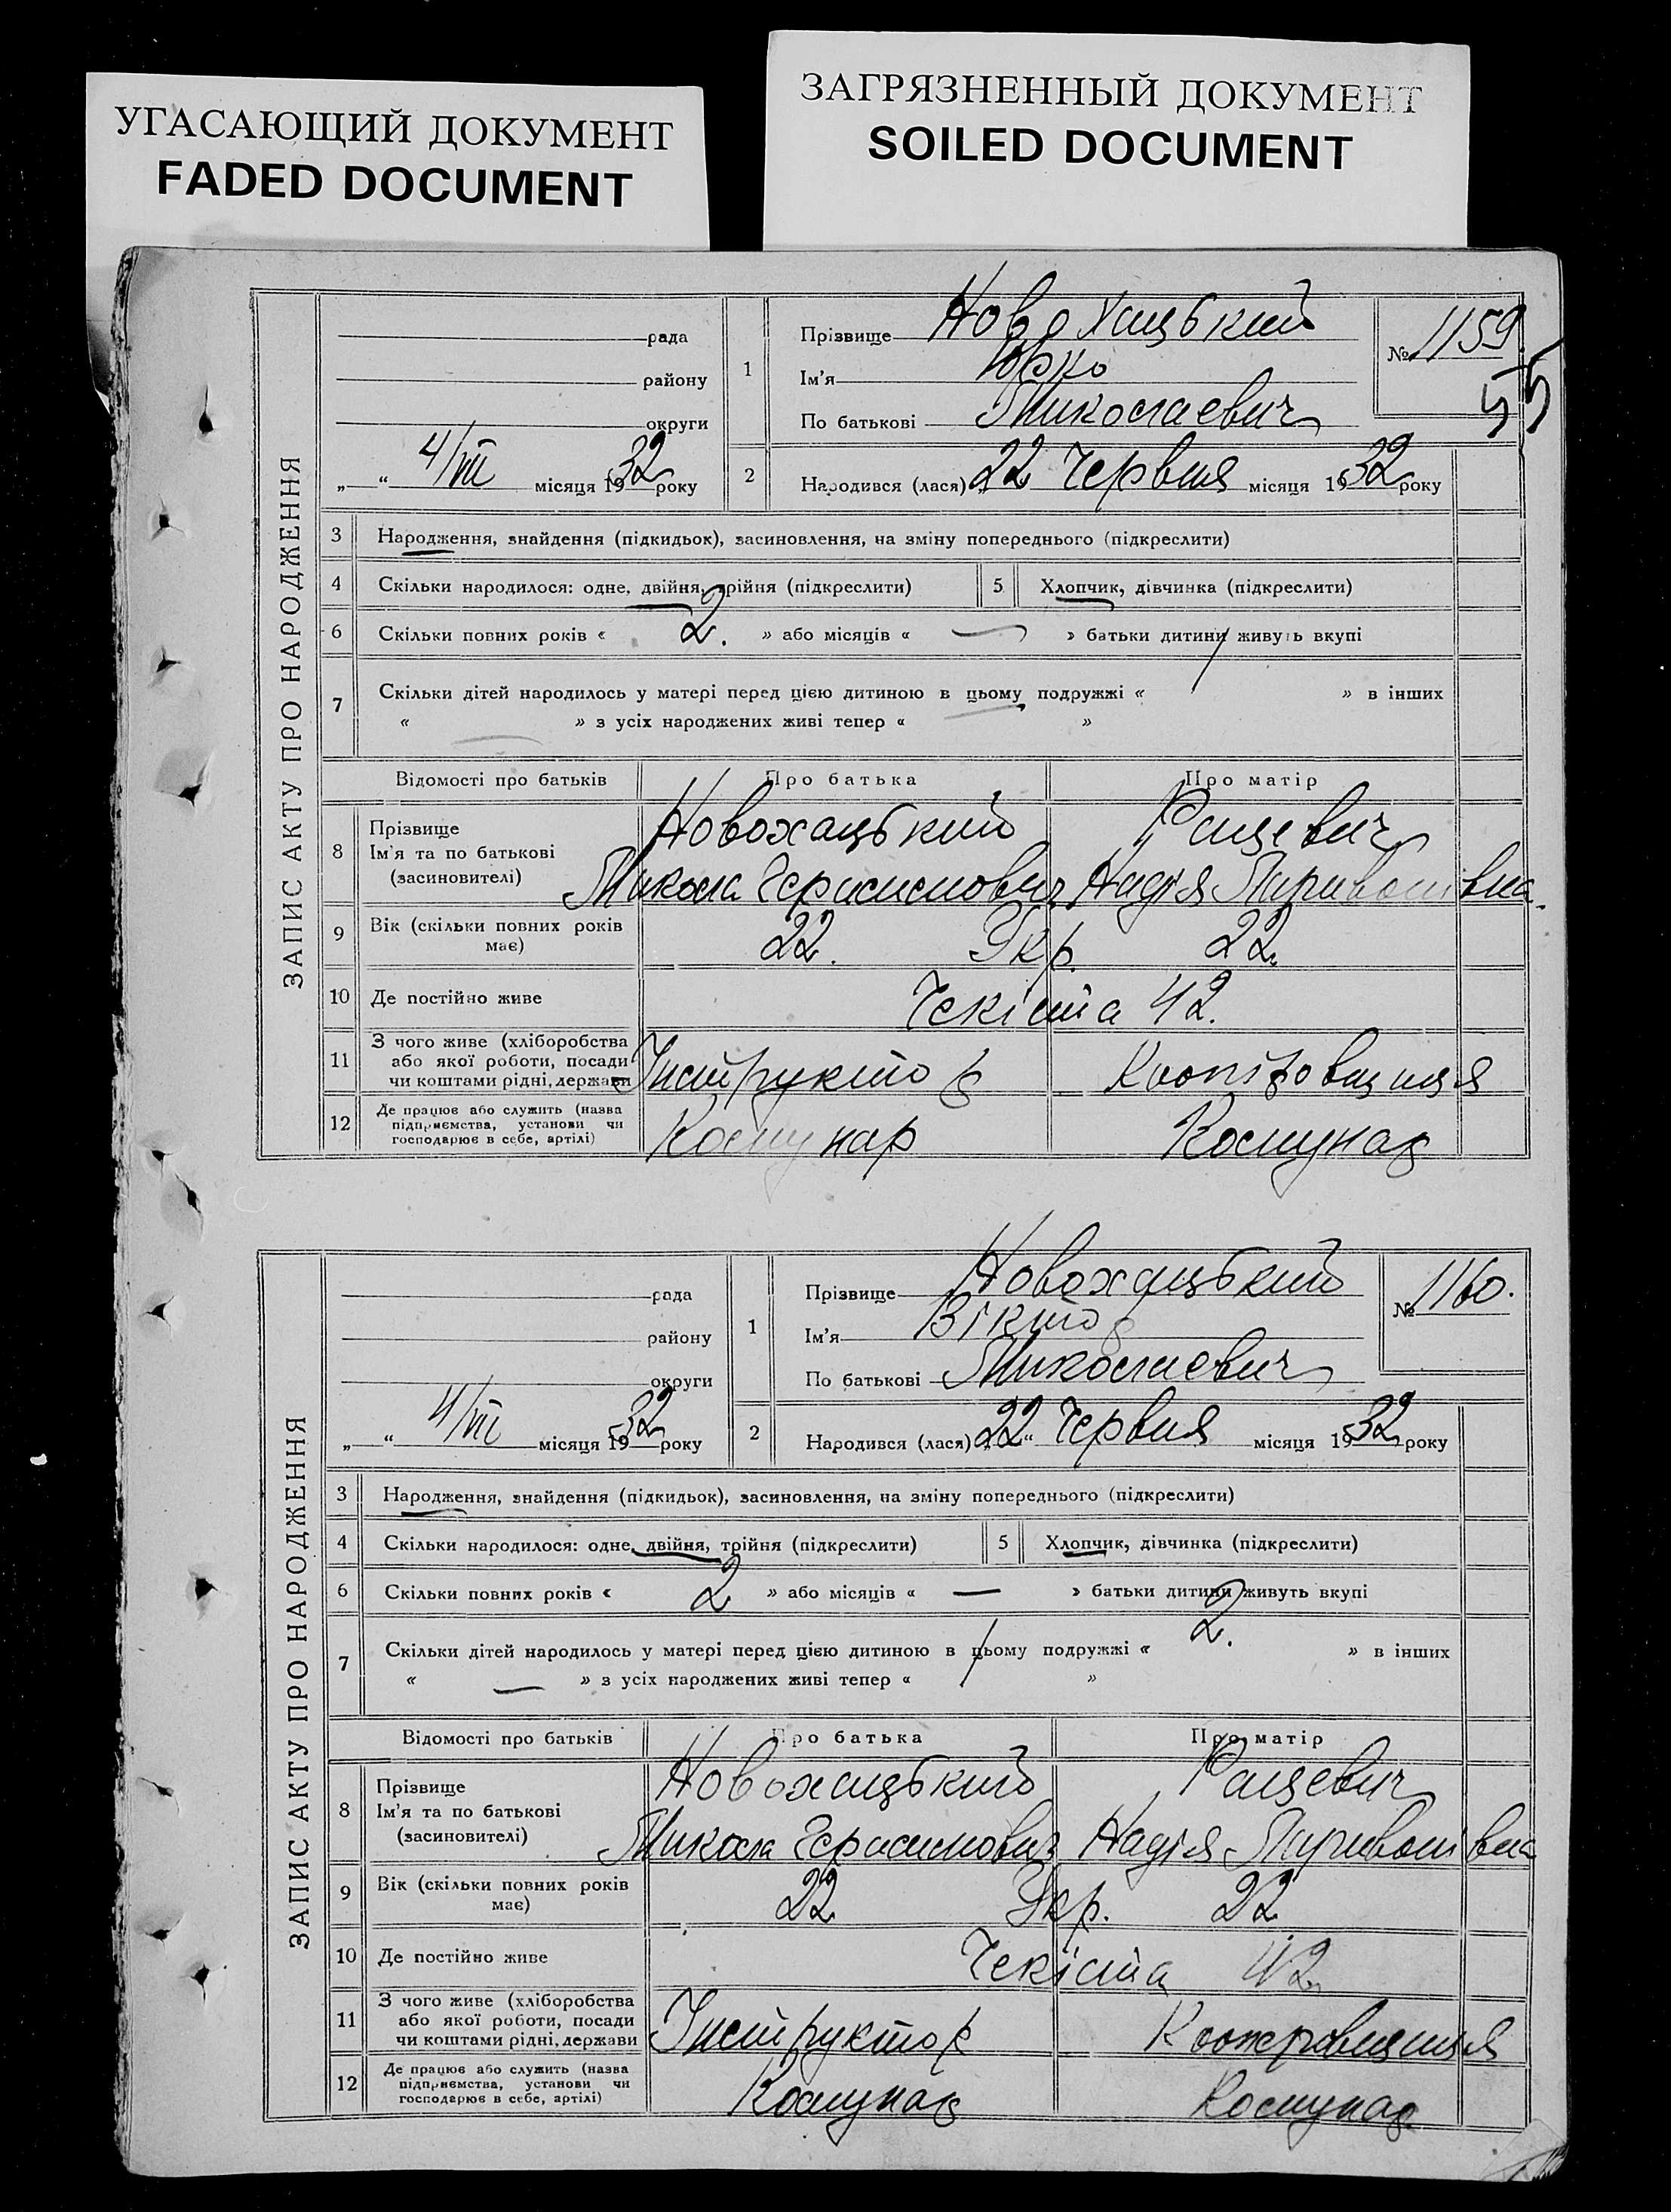 УГАСАЮЩИЙ ДОКУМЕНТ
FADED DOCUMENT
ЗАГРЯЗНЕННЫЙ ДОКУМЕНТ
SOILED DOCUMENT
ЗАПИС АКТУ ПРО НАРОДЖЕННЯ
рада
району
округи
„ “ 4/VII місяця 1932 року
1 Прізвище Новохацький
Ім'я Юрко
По батькові Миколаевич
№ 1159.
55
2 Народився (лася) „22 Червня місяця 1932 року
3 Народження, знайдення (підкидьок), засиновлення, на зміну попереднього (підкреслити)
4 Скільки народилося: одне, двійня, трійня (підкреслити) 5 Хлопчик, дівчинка (підкреслити)
6 Скільки повних років « 2. » або місяців « — » батьки дитини живуть вкупі
7 Скільки дітей народилось у матері перед цією дитиною в цьому подружжі « 1 » в інших
« — » з усіх народжених живі тепер « »
Відомості про батьків Про батька Про матір
8 Прізвище Новохацький Рацевич
Ім'я та по батькові
(засиновителі) Микола Герасимович Надія
9 Вік (скільки повних років має) 22. Укр. 22.
10 Де постійно живе Чекіста 42.
11 З чого живе (хліборобства або якої роботи, посади чи коштами рідні, держави Інструктор
12 Де працює або служить (назва підприємства, установи чи господарює в себе, артілі) Комунар Комунар
ЗАПИС АКТУ ПРО НАРОДЖЕННЯ
рада
району
округи
„ “ 4/VII місяця 1932 року
1 Прізвище Новохацький
Ім'я Віктор
По батькові Миколаевич
№ 1160.
2 Народився (лася) „22“ Червня місяця 1932 року
3 Народження, знайдення (підкидьок), засиновлення, на зміну попереднього (підкреслити)
4 Скільки народилося: одне, двійня, трійня (підкреслити) 5 Хлопчик, дівчинка (підкреслити)
6 Скільки повних років « 2 » або місяців « — » батьки дитини живуть вкупі
7 Скільки дітей народилось у матері перед цією дитиною в цьому подружжі « 2. » в інших
« — » з усіх народжених живі тепер « »
Відомості про батьків Про батька Про матір
8 Прізвище Новохацький Рацевич
Ім'я та по батькові
(засиновителі) Микола Герасимович Надія
9 Вік (скільки повних років має) 22 Укр. 22
10 Де постійно живе Чекіста 42
11 З чого живе (хліборобства або якої роботи, посади чи коштами рідні, держави Інструктор
12 Де працює або служить (назва підприємства, установи чи господарює в себе, артілі) Комунар Комунар